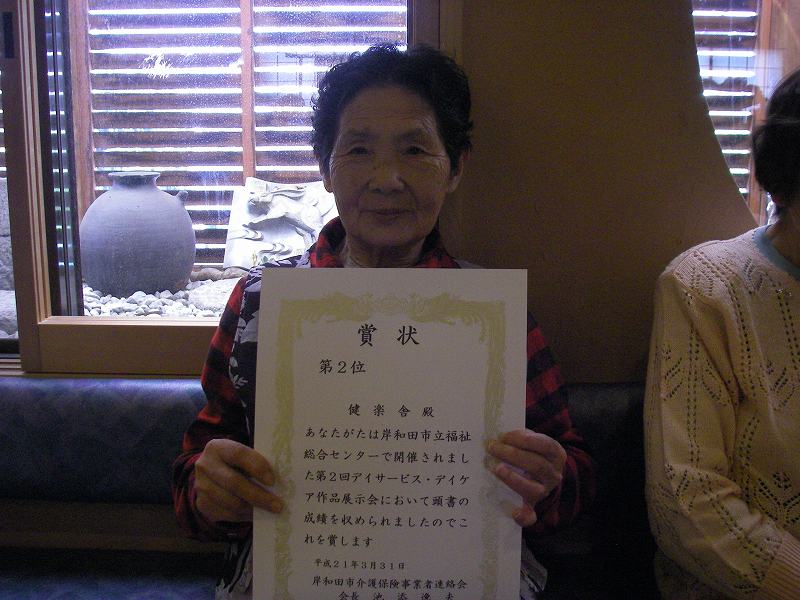 賞状
第２位
健楽舎殿
あなたがたは岸和田市立福祉
総合センターで開催されまし
た第２回デイサービス・デイケ
ア作品展示会において頭書の
成績を収められましたのでこ
れを賞します
平成２１年３月３１日
岸和田市介護保険事業者連絡会
会長 池添逸夫